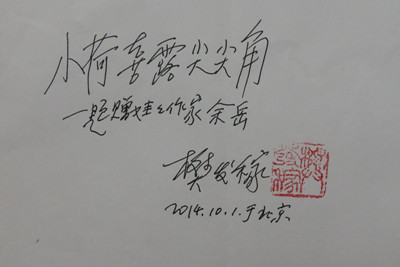 小荷喜露尖尖角
—题赠娃娃作家余岳
樊发稼
2014.10.1.于北京
樊发稼